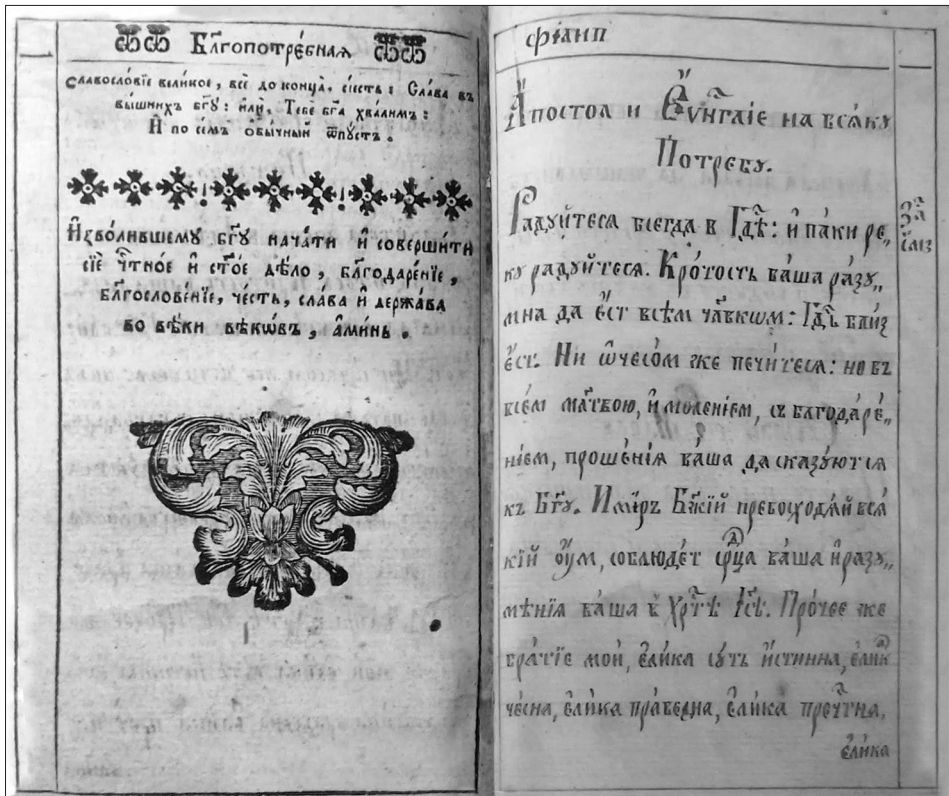 Бл҃гопотре́бная
Славосло́вїе вели́кое, всѐ до конца̀. сі́есть: Сла́ва въ
вы́шнихъ бг҃ꙋ: и҆лѝ, Тебѐ бг҃а хва́лимъ:
И҆ по се́мъ ѡ҆бы́чный ѿпꙋ́стъ.
И҆зво́лившемꙋ бг҃ꙋ нача́ти и҆ соверши́ти
сїѐ чⷭ҇тное и҆ ст҃о́е дѣ́ло, бл҃годаре́нїе,
бл҃гослове́нїе, че́сть, сла́ва и держа́ва
во вѣ́ки вѣкѡ́въ, а҆ми́нь.
Филип
А҆посто́л и Є҆ѵⷢ҇лїе на всѧ́кꙋ
Потре́бꙋ.
Ра́дꙋйтесѧ всегда в Гдⷭ҇ѣ: и҆ па́ки ре-
кꙋ ра́дꙋйтесѧ. Кро́тость ва́ша ра́зꙋ-
мна да є҆́ст всѣ́м чл҃вкѡм: Гдⷭ҇ь бли́з
є҆́ст. Ни ѡ҆ чесо́м же пецы́тесѧ: но въ
все́м мл҃твою, и҆ моле́нїем, съ благодаре́-
нїем, проше́нїѧ ва́ша да сказꙋ́ютсѧ
къ Бг҃ꙋ. И ми́р Бж҃їй превосходѧ́й всѧ́-
кїй оу҆м, соблюде́т срⷣца ва́ша и҆ разꙋ-
мѣ́нїѧ ва́ша ѡ҆ Хрⷭ҇тѣ̀ І҆с҃ѣ. Про́чее же
бра́тїе моѝ, є҆ли́ка сꙋ́ть и҆́стинна, є҆ли́каⷽ
че́сна, є҆ли́ка пра́ведна, є҆ли́ка преч҇тна,
є҆ли́ка